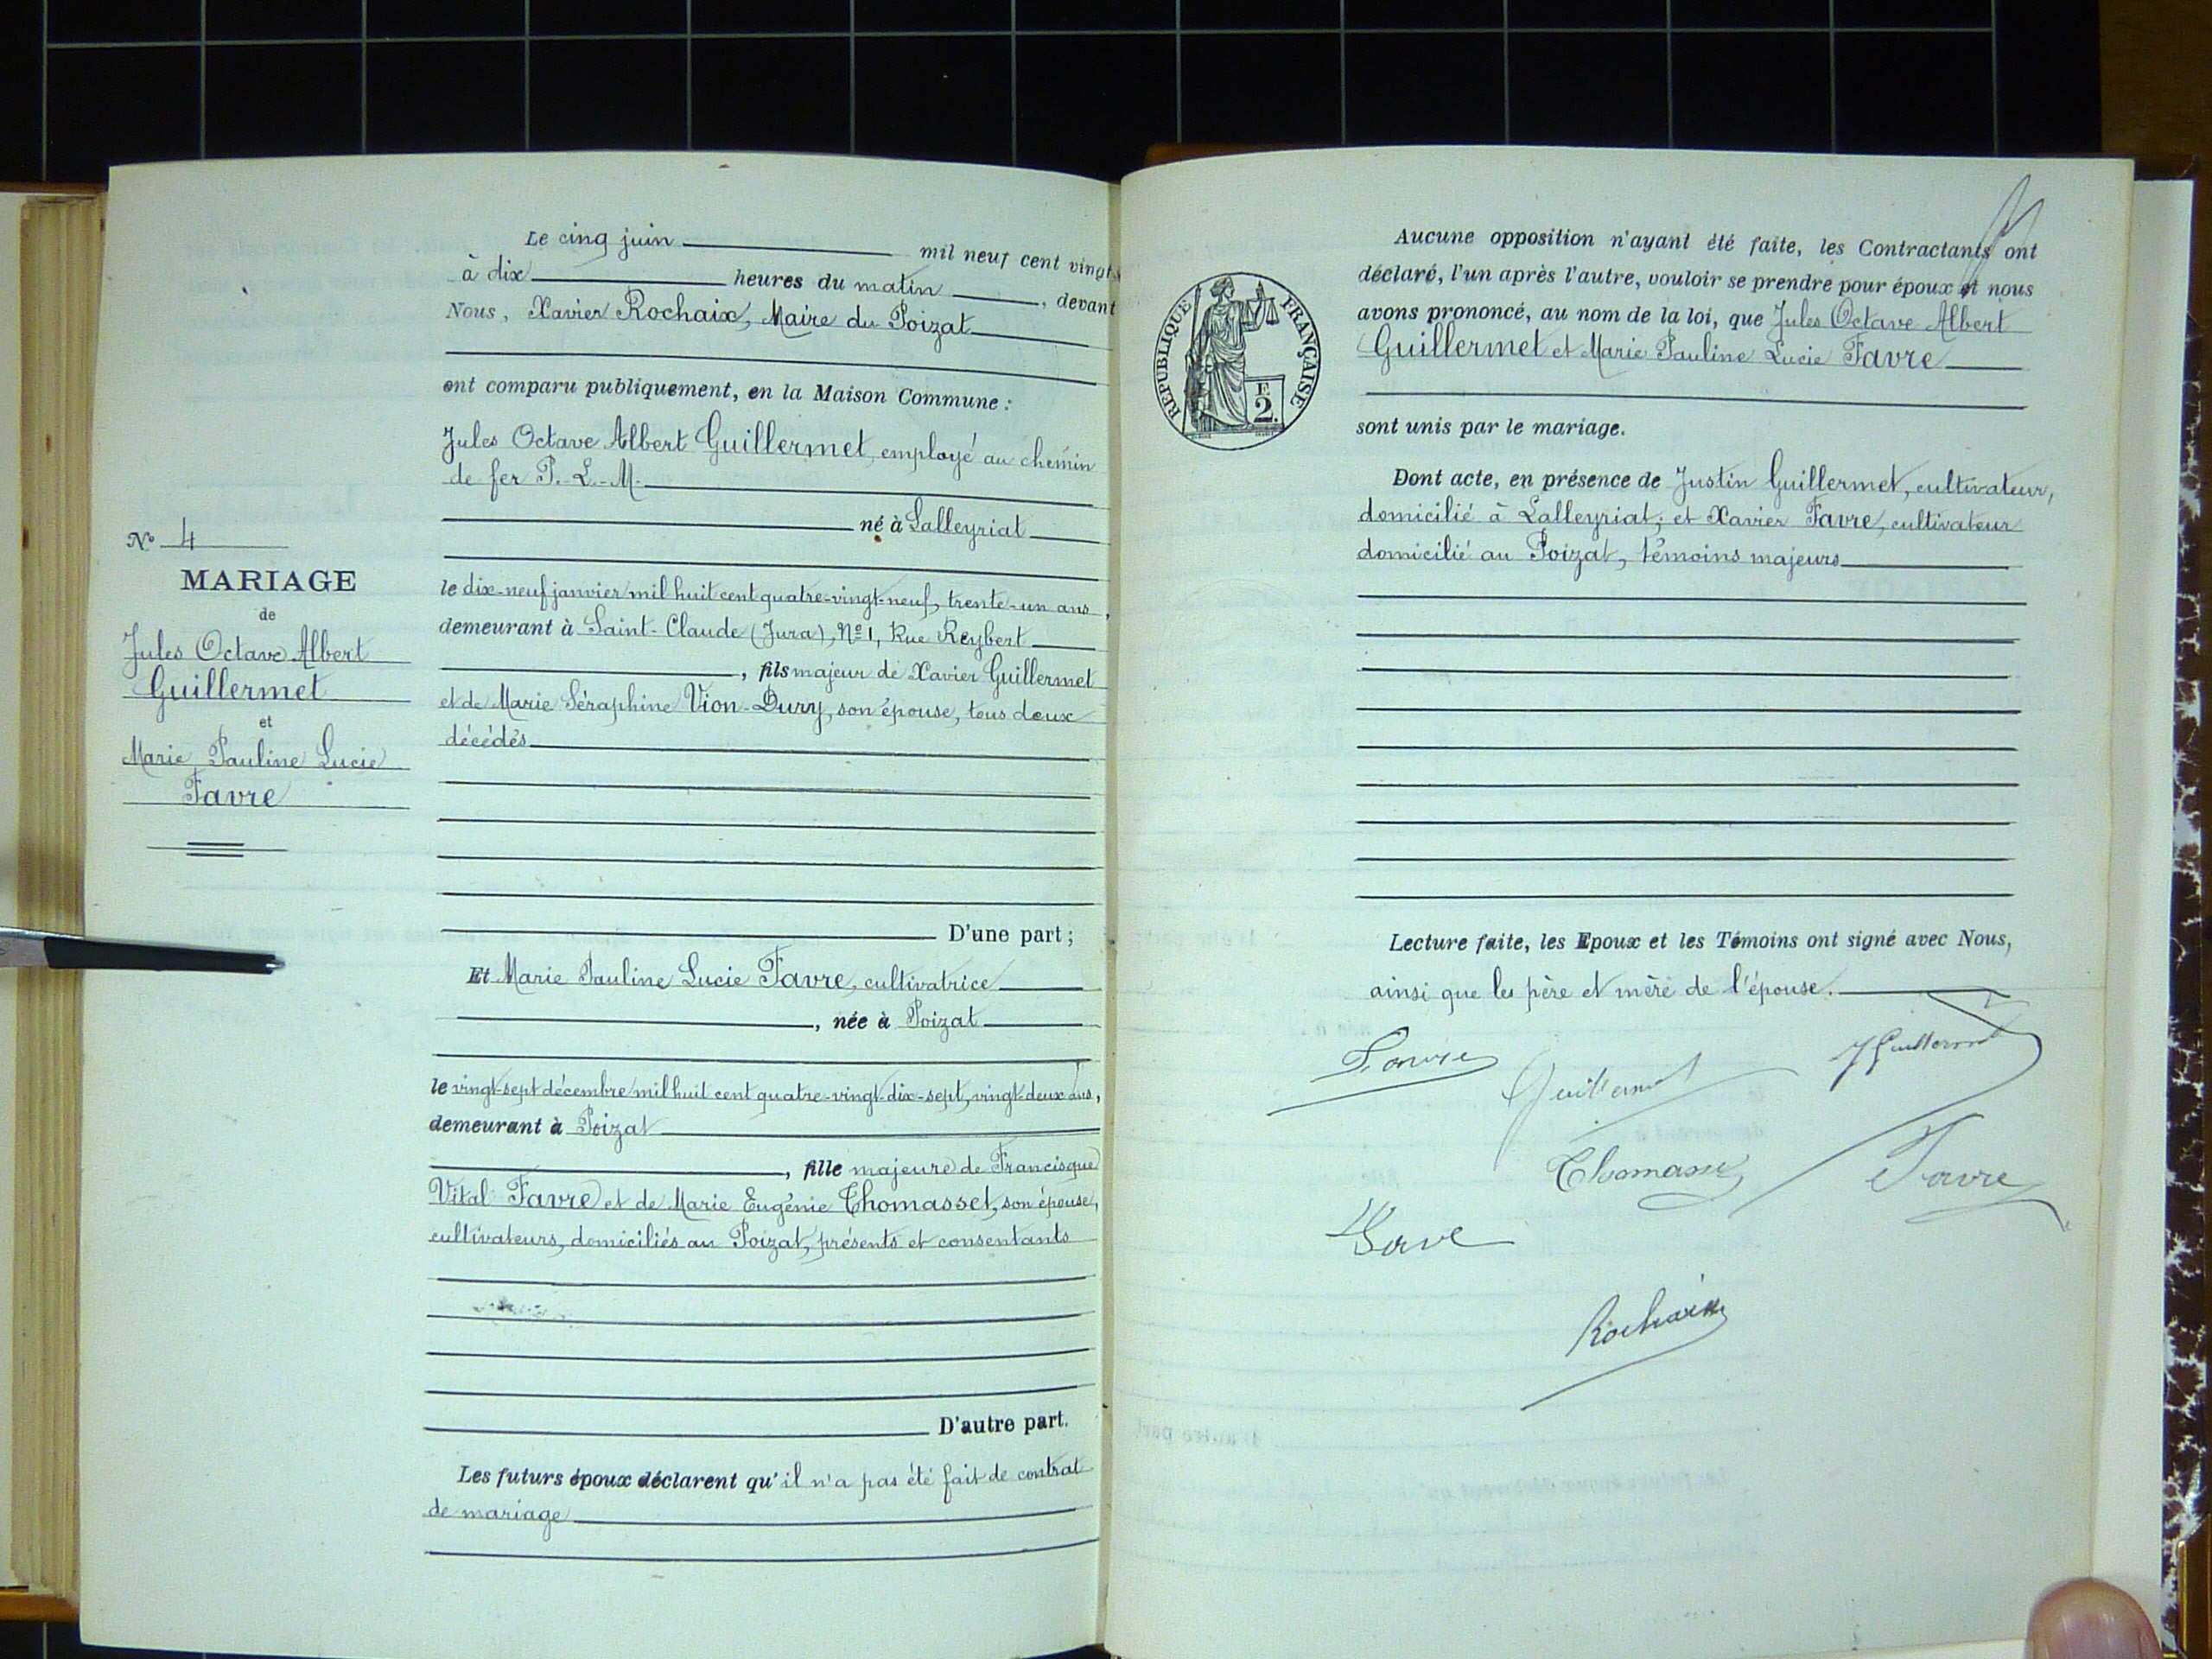 Le cinq juin mil neuf cent vingt
à dix heures du matin, devant
Nous, Xavier Rochaix, Maire du Poizat
ont comparu publiquement, en la Maison Commune :
Jules Octave Albert Guillermet, employé au chemin
de fer P.-L.-M.
né à Lalleyriat
le dix-neuf janvier mil huit cent quatre-vingt-neuf, trente-un ans,
demeurant à Saint-Claude (Jura), Nº 1, Rue Reybert
, fils majeur de Xavier Guillermet
et de Marie Séraphine Vion-Dury, son épouse, tous deux
décédés
D'une part ;
Et Marie Pauline Lucie Favre, cultivatrice
, née à Poizat
le vingt-sept décembre mil huit cent quatre-vingt-dix-sept, vingt-deux ans,
demeurant à Poizat
, fille majeure de Francisque
Vital Favre et de Marie Eugénie Thomasset, son épouse,
cultivateurs, domiciliés au Poizat, présents et consentants
D'autre part.
Les futurs époux déclarent qu'il n'a pas été fait de contrat
de mariage
Nº 4
MARIAGE
de
Jules Octave Albert
Guillermet
et
Marie Pauline Lucie
Favre
RÉPUBLIQUE FRANÇAISE
2 F.
Aucune opposition n'ayant été faite, les Contractants ont
déclaré, l'un après l'autre, vouloir se prendre pour époux et nous
avons prononcé, au nom de la loi, que Jules Octave Albert
Guillermet et Marie Pauline Lucie Favre
sont unis par le mariage.
Dont acte, en présence de Justin Guillermet, cultivateur,
domicilié à Lalleyriat; et Xavier Favre, cultivateur
domicilié au Poizat, témoins majeurs
Lecture faite, les Epoux et les Témoins ont signé avec Nous,
ainsi que les père et mère de l'épouse.
Favre
Guillermet
J Guillermet
Favre
Rochaix